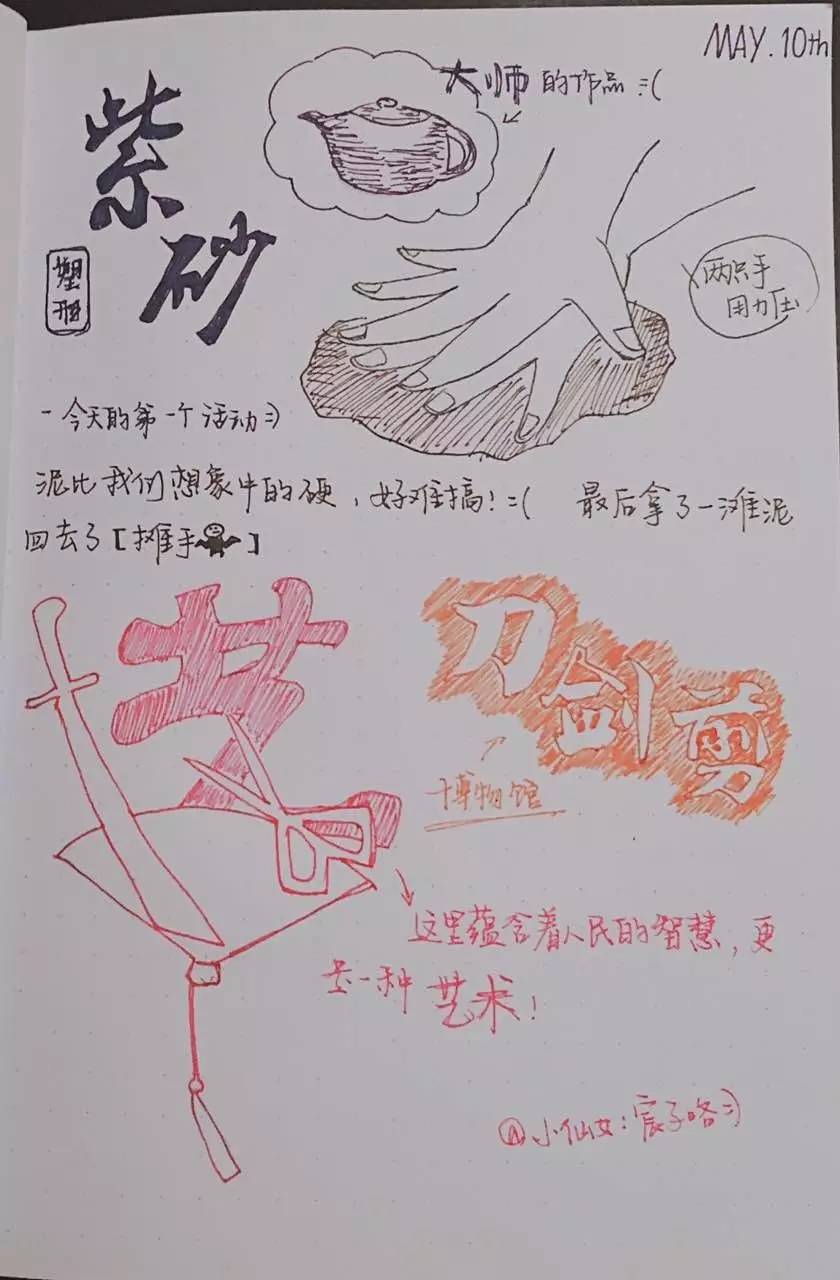 MAY.10th
紫
砂
塑
大师的作品 :(
两只手
用力压
- 今天的第一个活动 :)
泥比我们想象中的硬，好难搞！:( 最后拿了一滩泥
回去了 [摊手]
艺
刀
剑
剪
博物馆
这里蕴含着人民的智慧，更
是一种 艺术！
@小仙女：宸子咯 :)